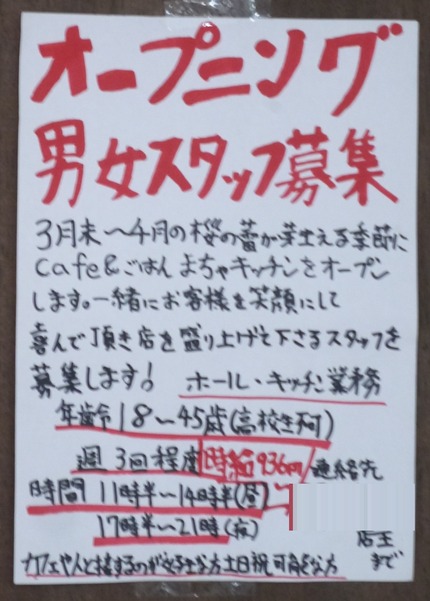 オープニング
男女スタッフ募集
3月末〜4月の桜の蕾が芽生える季節に
cafe&ごはん まちゃキッチンをオープン
します。一緒にお客様を笑顔にして
喜んで頂き店を盛り上げて下さるスタッフを
募集します! ホール・キッチン業務
年齢令18〜45歳(高校生不可)
週3回程度 時給936円/連絡先
時間 11時半〜14時半(昼)
17時半〜21時(夜) 店主
まで
カフェや人と接するのが好きな方土日祝可能な方